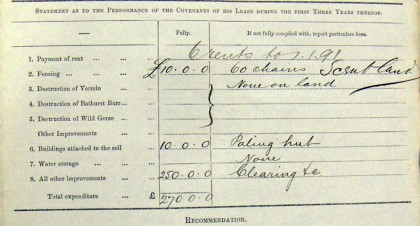 STATEMENT AS TO THE PERFORMANCE OF THE COVENANTS OF HIS LEASE DURING THE FIRST THREE YEARS THEREOF.
Fully. If not fully complied with, report particulars here.
1. Payment of rent ... ... 6 rents to 1.1.91
2. Fencing ... ... ... £10.0.0 60 chains
3. Destruction of Vermin ... None on land
4. Destruction of Bathurst Burr...
5. Destruction of Wild Gorse ...
Other Improvements ...
6. Buildings attached to the soil 10.0.0 Paling hut
7. Water storage ... ... None
8. All other improvements ... 250.0.0 Clearing &c
Total expenditure ... £ 270.0.0
RECOMMENDATION.